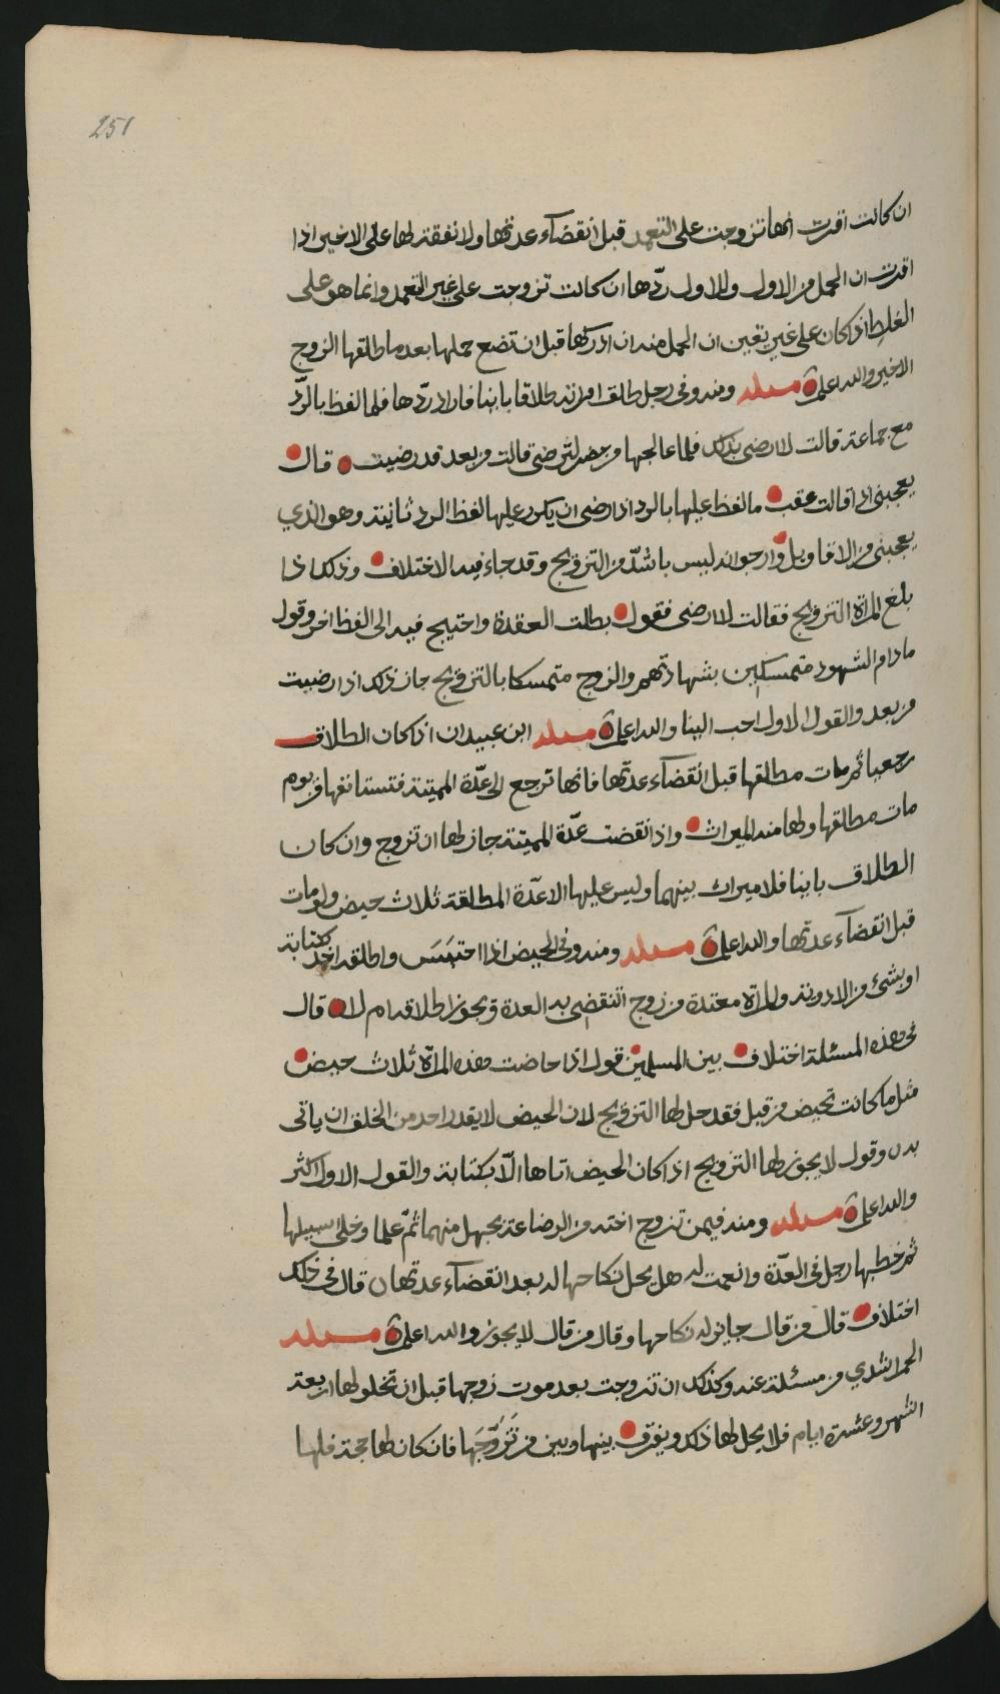 251
ان كانت اقرت انها تزوجت على التعمد قبل انقضآء عدتها ولا نفقة لها على الاخير اذا
اقرت ان الحمل من الاول وللاول ردّها ان كانت تزوجت على غير التعمد وانما هو على
الغلط اذا كان على غير يقين ان الحمل منه ان ادركها قبل ان تضع حملها بعد ما طلقها الزوج
الاخير والله اعلم مسئلة ومنه وفى رجل طلق امراته طلاقا باينا فاراد ردّها فلما لفظ بالرّد
مع جماعة قالت لا ارضى بذلك فلما عالجها من حضر لترضى قالت من بعد قد رضيت قال
يعجبنى اذا قالت عقب ما لفظ عليها بالرد اذا رضى ان يكرر عليها لفظ الرد ثانية وهو الذي
يعجبنى من الاقاويل وارجو انه ليس باشدّ من التزويج وقد جاء فيه الاختلاف وذلك اذا
بلغ المراة التزويج فقالت لا ارضى فقول بطلت العقدة واحتيج فيه الى لفظ اخر وقول
ما دام الشهود متمسكين بشهادتهم والزوج متمسكا بالتزويج جاز ذلك اذا رضيت
من بعد والقول الاول احب الينا والله اعلم مسئلة ابن عبيدان اذا كان الطلاق
رجعيا ثم مات مطلقها قبل انقضآء عدتها فانها ترجع الى عدّة المميتة فتستانفها من يوم
مات مطلقها ولها منه الميراث واذا انقضت عدّة المميتة جاز لها ان تزوج وان كان
الطلاق باينا فلا ميراث بينهما وليس عليها الا عدّة المطلقة ثلاث حيض ولو مات
قبل انقضآء عدتها والله اعلم مسئلة ومنه وفى الحيض اذا احتبَسَ واطلقه احد بكتابة
او بشئ من الادوية والمراة معتدة من زوج اتنقضى به العدة ويجوز اطلاقه ام لا قال
فى هذه المسئلة اختلاف بين المسلمين قول اذا حاضت هذه المراة ثلاث حيض
مثل ما كانت تحيض من قبل فقد حل لها التزويج لان الحيض لا يقدر احد من الخلق ان ياتى
به وقول لا يجوز لها التزويج اذا كان الحيض اتاها الّا بكتابة والقول الاول اكثر
والله اعلم مسئلة ومنه فيمن تزوج اخته من الرضاعة بجهل منهما ثمّ علما وخلى سبيلها
ثم خطبها رجل فى العدّة وانعمت له هل يحل نكاحها له بعد انقضآء عدتها قال فى ذلك
اختلاف قال من قال جايز له نكاحها وقال من قال لا يجوز والله اعلم مسئلة
الحمراشدي من مسئلة عنه وكذلك ان تزوجت بعد موت زوجها قبل ان تخلو لها اربعة
اشهر وعشرة ايام فلا يحل لها ذلك ويفرق بينها وبين من تَزَوَّجَها فان كان لها حجة فلها